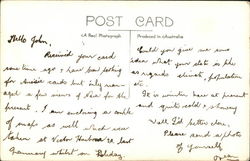 POST CARD
A Real Photograph
Produced in Australia
Hello John,
Received your card
some time ago & have been looking
for cards but only
a few views of for the
present. I am enclosing a couple
of snaps as well which were
taken at Victor Harbour last
whilst on Holiday.
Could you give me some
idea what your state is like
as regards climate, population
etc.
It is winter here at present
and quite cold &
Well I'd better close,
Please send a photo
of yourself